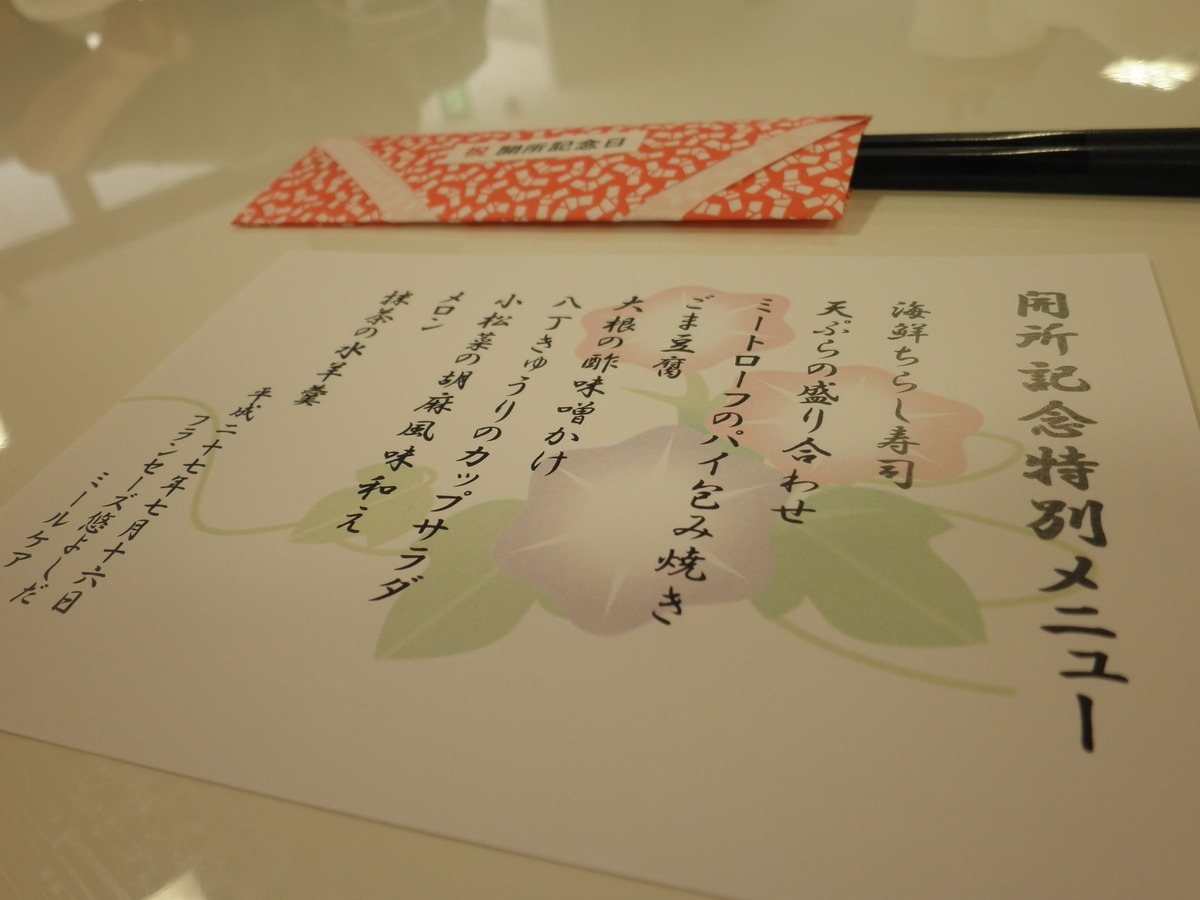 祝 開所記念日
開所記念特別メニュー
海鮮ちらし寿司
天ぷらの盛り合わせ
ミートローフのパイ包み焼き
ごま豆腐
大根の酢味噌かけ
八丁きゅうりのカップサラダ
小松菜の胡麻風味和え
メロン
抹茶の水羊羹
平成二十七年七月十六日
フランセーズ悠よしだ
ミールケア